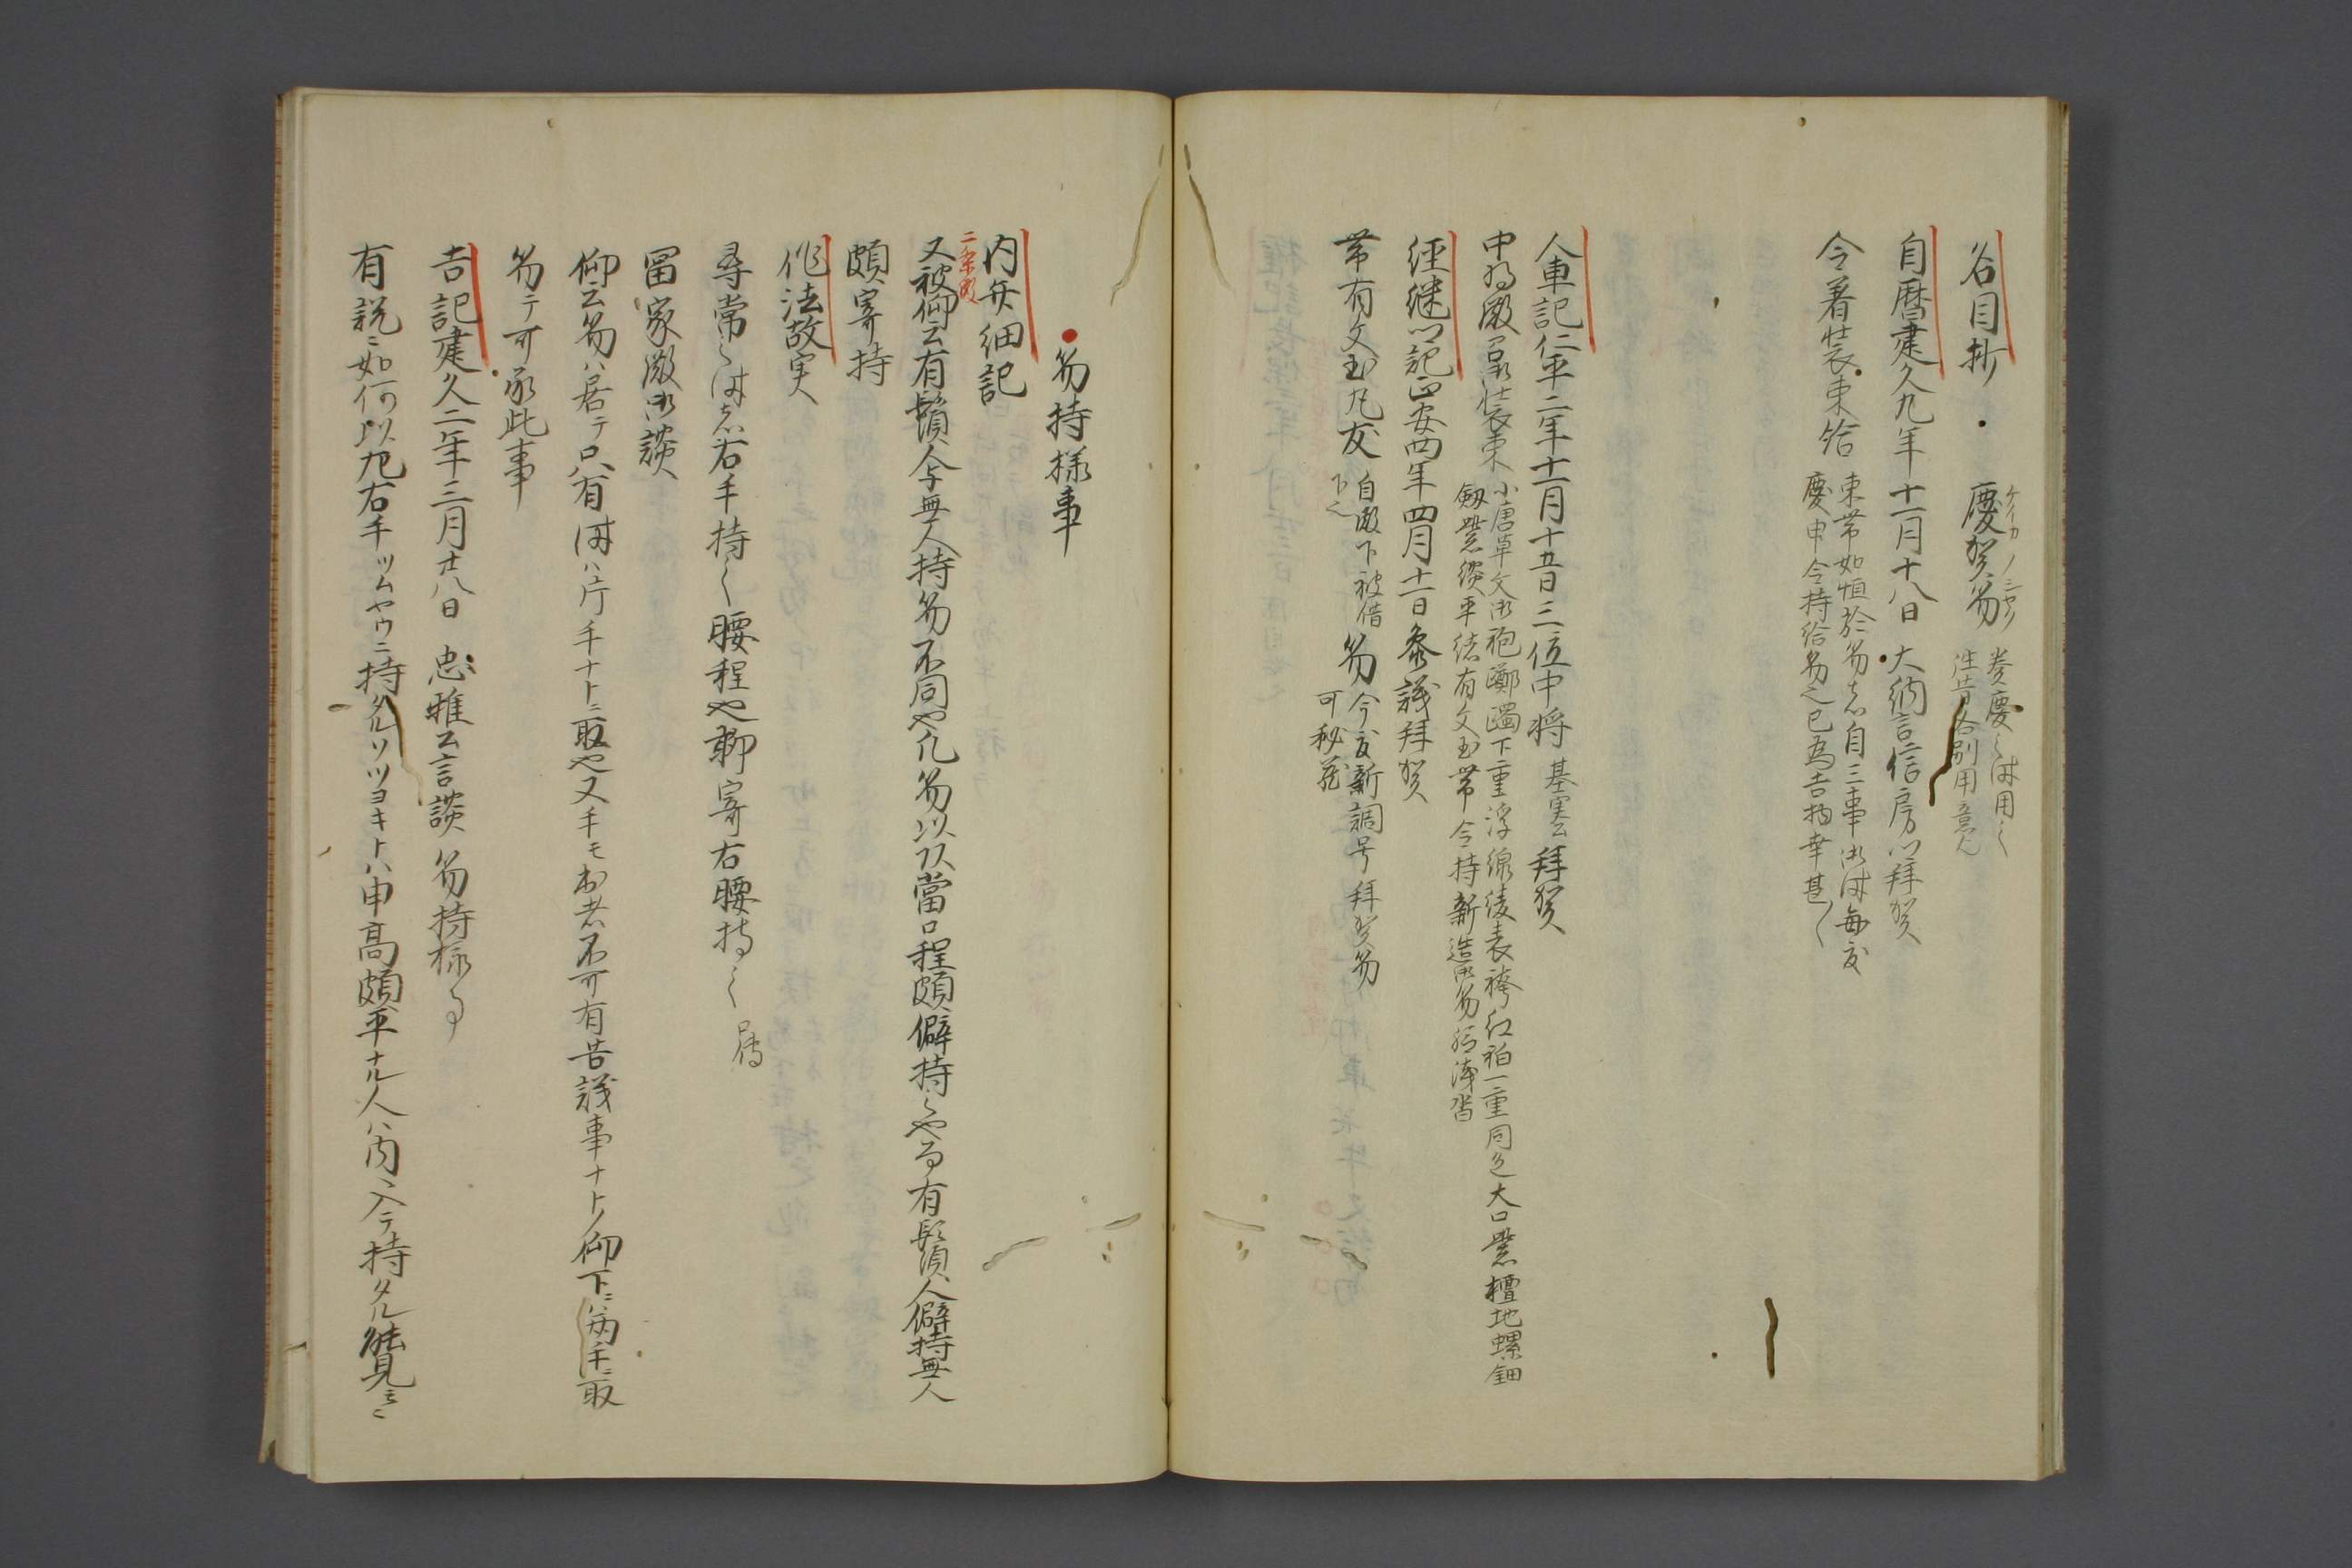 名目抄　慶賀笏 ケイカノシヤク 奏慶之時用之
自暦建久九年十一月十八日 大納言信房 拝賀
令着装束給 束帯如恒於笏者自三事御時毎度
慶申令持給笏也已為吉物幸甚〻
人車記仁平二年十一月十五日三位中将 基実公 拝賀
中将殿召御装束 小唐草文御袍躑躅下重浮線綾表袴紅袙一重同色大口紫檀地螺鈿
劔紫緂平緒有文玉帯令持新造御笏給浅沓
経継卿記正安四年四月十一日参議拝賀
帯有文玉丸友 自殿下被借下之 笏 今度新調号拝賀笏
可秘蔵
笏持様事
内弁細記
二条殿
又被仰云有鬚人与無人持笏不同也凡笏以頭當口程頗僻持之也而有鬚人僻持無人
頗寄持
作法故実
尋常之時者右手持之腰程也聊寄右腰持之
冨家殿御談
仰云笏ハ居テ只有時ハ片手ナトニ取也又手モ不可有若議事ナトノ仰下ニハ両手ニ取
笏テ可承此事
吉記建久二年三月廿八日 忠雅公言談 笏持様事
有説ニ如何以左右手ツムヤウニ持タルソツヨキトハ申高頗平ナル人ハ内ヘ入テ持タル能見云〻